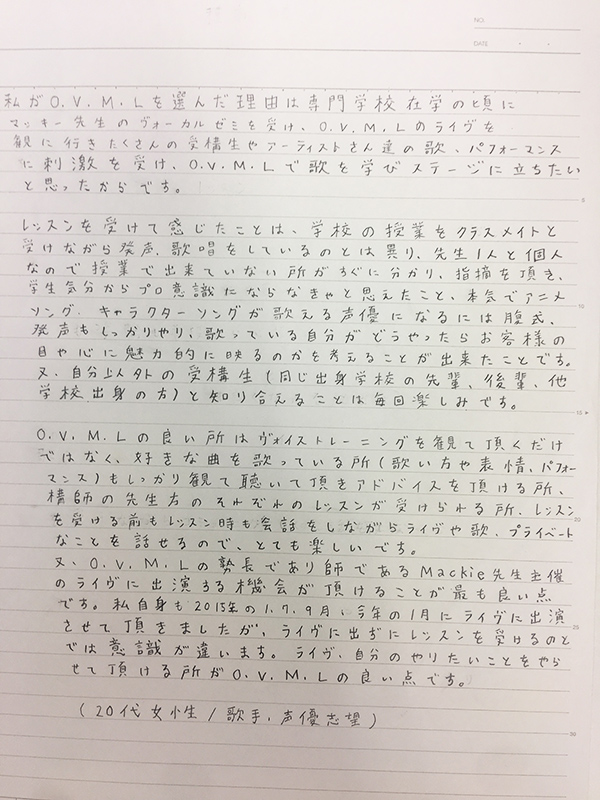 NO.
DATE
私がO.V.M.Lを選んだ理由は専門学校在学の頃に
マッキー先生のヴォーカルゼミを受け、O.V.M.Lのライヴを
観に行きたくさんの受構生やアーティストさん達の歌、パフォーマンス
に刺激を受け、O.V.M.Lで歌を学びステージに立ちたい
と思ったからです。
レッスンを受けて感じたことは、学校の授業をクラスメイトと
受けながら発声、歌唱をしているのとは異り、先生1人と個人
なので授業で出来ていない所がすぐに分かり、指摘を頂き、
学生気分からプロ意識にならなきゃと思えたこと、本気でアニメ
ソング、キャラクターソングが歌える声優になるには腹式、
発声もしっかりやり、歌っている自分がどうやったらお客様の
目や心に魅力的に映るのかを考えることが出来たことです。
又、自分以外の受構生(同じ出身学校の先輩、後輩、他
学校出身の方)と知り合えることは毎回楽しみです。
O.V.M.Lの良い所はヴォイストレーニングを観て頂くだけ
ではなく、好きな曲を歌っている所(歌い方や表情、パフォー
マンス)もしっかり観て聴いて頂きアドバイスを頂ける所、
構師の先生方のそれぞれのレッスンが受けられる所、レッスン
を受ける前もレッスン時も会話をしながらライヴや歌、プライベート
なことを話せるので、とても楽しいです。
又、O.V.M.Lの塾長であり師であるMackie先生主催
のライヴに出演する機会が頂けることが最も良い点
です。私自身も2015年の1.7.9月、今年の1月にライヴに出演
させて頂きましたが、ライヴに出ずにレッスンを受けるのと
では意識が違います。ライヴ、自分のやりたいことをやら
せて頂ける所がO.V.M.Lの良い点です。
(20代女性/歌手、声優志望)
5
10
15
20
25
30